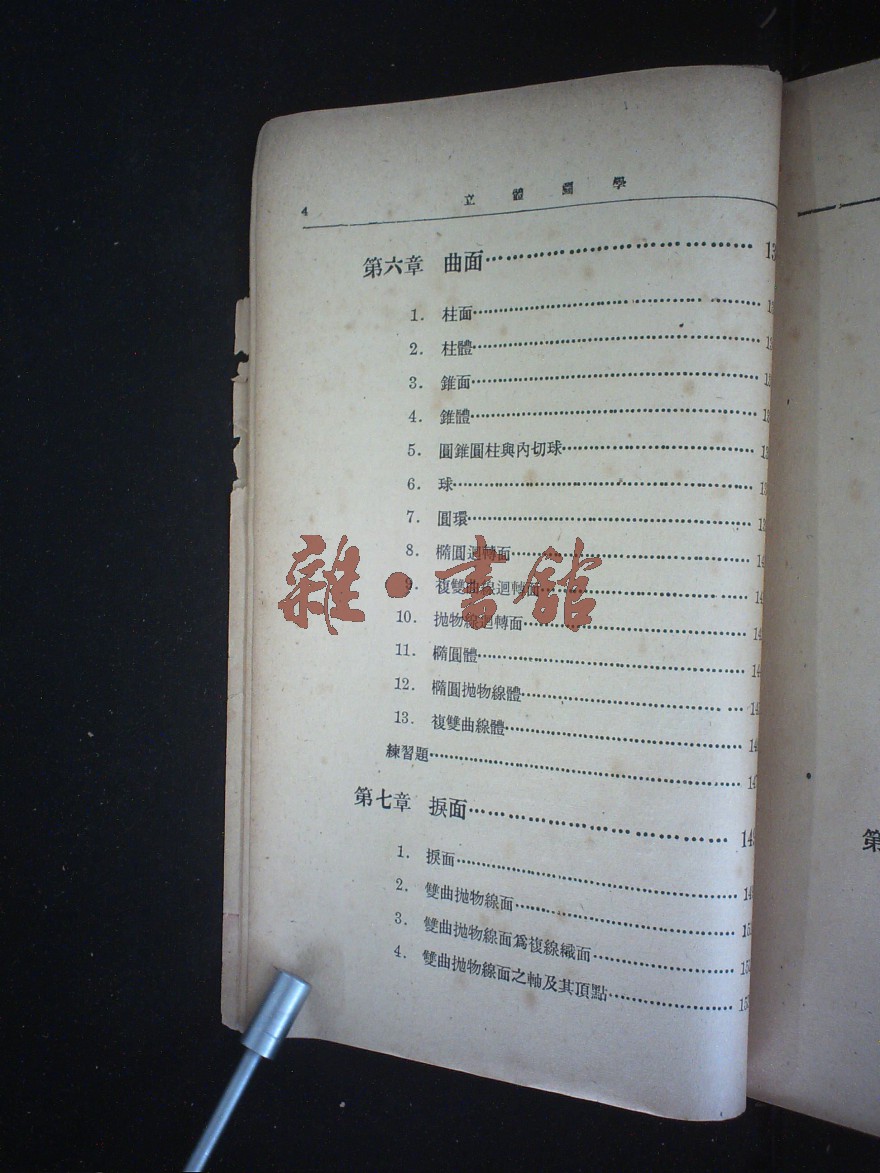 4 立體圖學
第六章 曲面
1. 柱面
2. 柱體
3. 錐面
4. 錐體
5. 圓錐圓柱與內切球
6. 球
7. 圓環
8. 橢圓迴轉面
9. 複雙曲線迴轉面
10. 拋物線迴轉面
11. 橢圓體
12. 橢圓拋物線體
13. 複雙曲線體
練習題
第七章 捩面
1. 捩面
2. 雙曲拋物線面
3. 雙曲拋物線面爲複線織面
4. 雙曲拋物線面之軸及其頂點
第
雜·書館